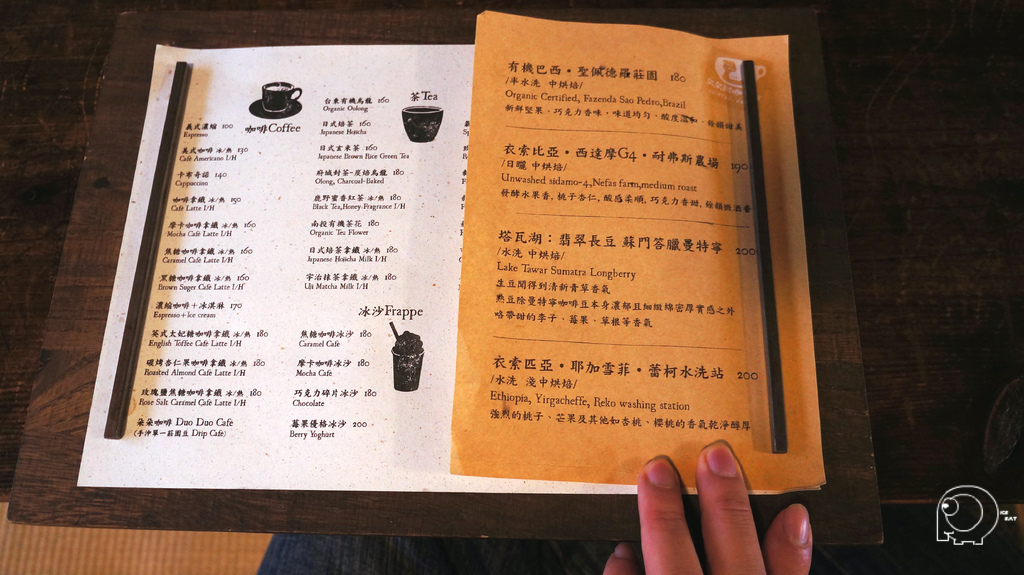 咖啡Coffee
義式濃縮 100
Espresso
美式咖啡 冰/熱 130
Café Americano I/H
卡布奇諾 140
Cappuccino
咖啡拿鐵 冰/熱 150
Café Latte I/H
摩卡咖啡拿鐵 冰/熱 160
Mocha Café Latte I/H
焦糖咖啡拿鐵 冰/熱 160
Caramel Café Latte I/H
黑糖咖啡拿鐵 冰/熱 160
Brown Suger Café Latte I/H
濃縮咖啡+冰淇淋 170
Espresso+Ice cream
英式太妃糖咖啡拿鐵 冰/熱 180
English Toffee Café Latte I/H
碳烤杏仁果咖啡拿鐵 冰/熱 180
Roasted Almond Café Latte I/H
玫瑰鹽焦糖咖啡拿鐵 冰/熱 180
Rose Salt Caramel Café Latte I/H
朵朵咖啡 Duo Duo Café
(手沖單一莊園豆 Drip Café)
茶Tea
台東有機烏龍 160
Organic Oolong
日式焙茶 160
Japanese Hojicha
日式玄米茶 160
Japanese Brown Rice Green Tea
府城封茶-炭焙烏龍 180
Olong, Charcoal-Baked
鹿野蜜香紅茶 冰/熱 180
Black Tea,Honey-Fragrance I/H
南投有機茶花 180
Organic Tea Flower
日式焙茶拿鐵 冰/熱 180
Japanese Hojicha Milk I/H
宇治抹茶拿鐵 冰/熱 180
Uji Matcha Milk I/H
冰沙Frappe
焦糖咖啡冰沙 180
Caramel Café
摩卡咖啡冰沙 180
Mocha Café
巧克力碎片冰沙 180
Chocolate
莓果優格冰沙 200
Berry Yoghurt
有機巴西·聖佩德羅莊園 180
/半水洗 中烘焙/
Organic Certified, Fazenda Sao Pedro,Brazil
新鮮堅果、巧克力香味、味道均勻、酸度溫和、餘韻甜美
衣索比亞·西達摩G4·耐弗斯農場 190
/日曬 中烘焙/
Unwashed sidamo-4,Nefas farm,medium roast
發酵水果香, 桃子杏仁, 酸感柔順, 巧克力香甜, 餘韻
塔瓦湖:翡翠長豆 蘇門答臘曼特寧 200
/水洗 中烘焙/
Lake Tawar Sumatra Longberry
生豆聞得到清新青草香氣
熟豆除曼特寧咖啡豆本身濃郁且細緻綿密厚實感之外
略帶甜的李子、莓果、草根等香氣
衣索匹亞·耶加雪菲·蕾柯水洗站 200
/水洗 淺中烘焙/
Ethiopia, Yirgacheffe, Reko washing station
強烈的桃子、芒果及其他如杏桃、櫻桃的香氣乾淨醇厚
ICE
EAT